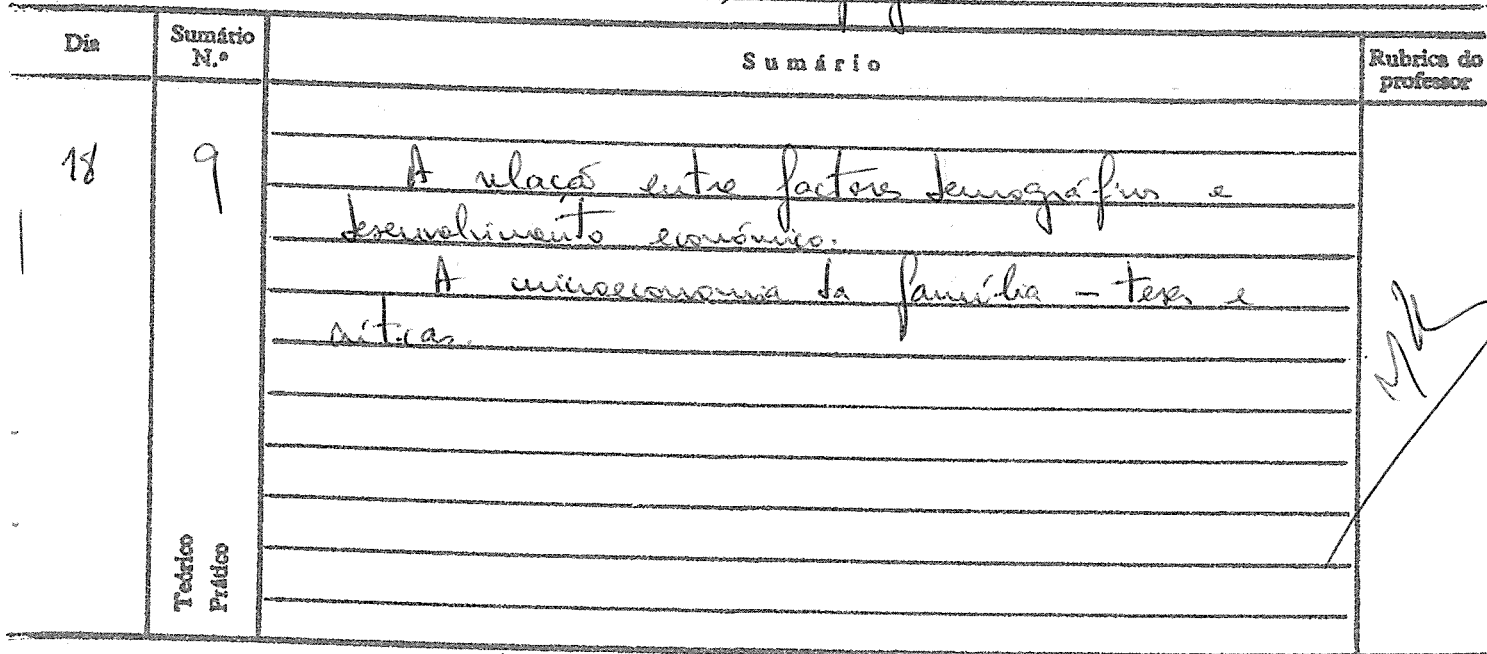 Dia
Sumário N.º
Sumário
Rubrica do professor
18
9
A relação entre factores demográficos e
desenvolvimento económico.
A microeconomia da família – teses e
críticas.
Teórico
Prático